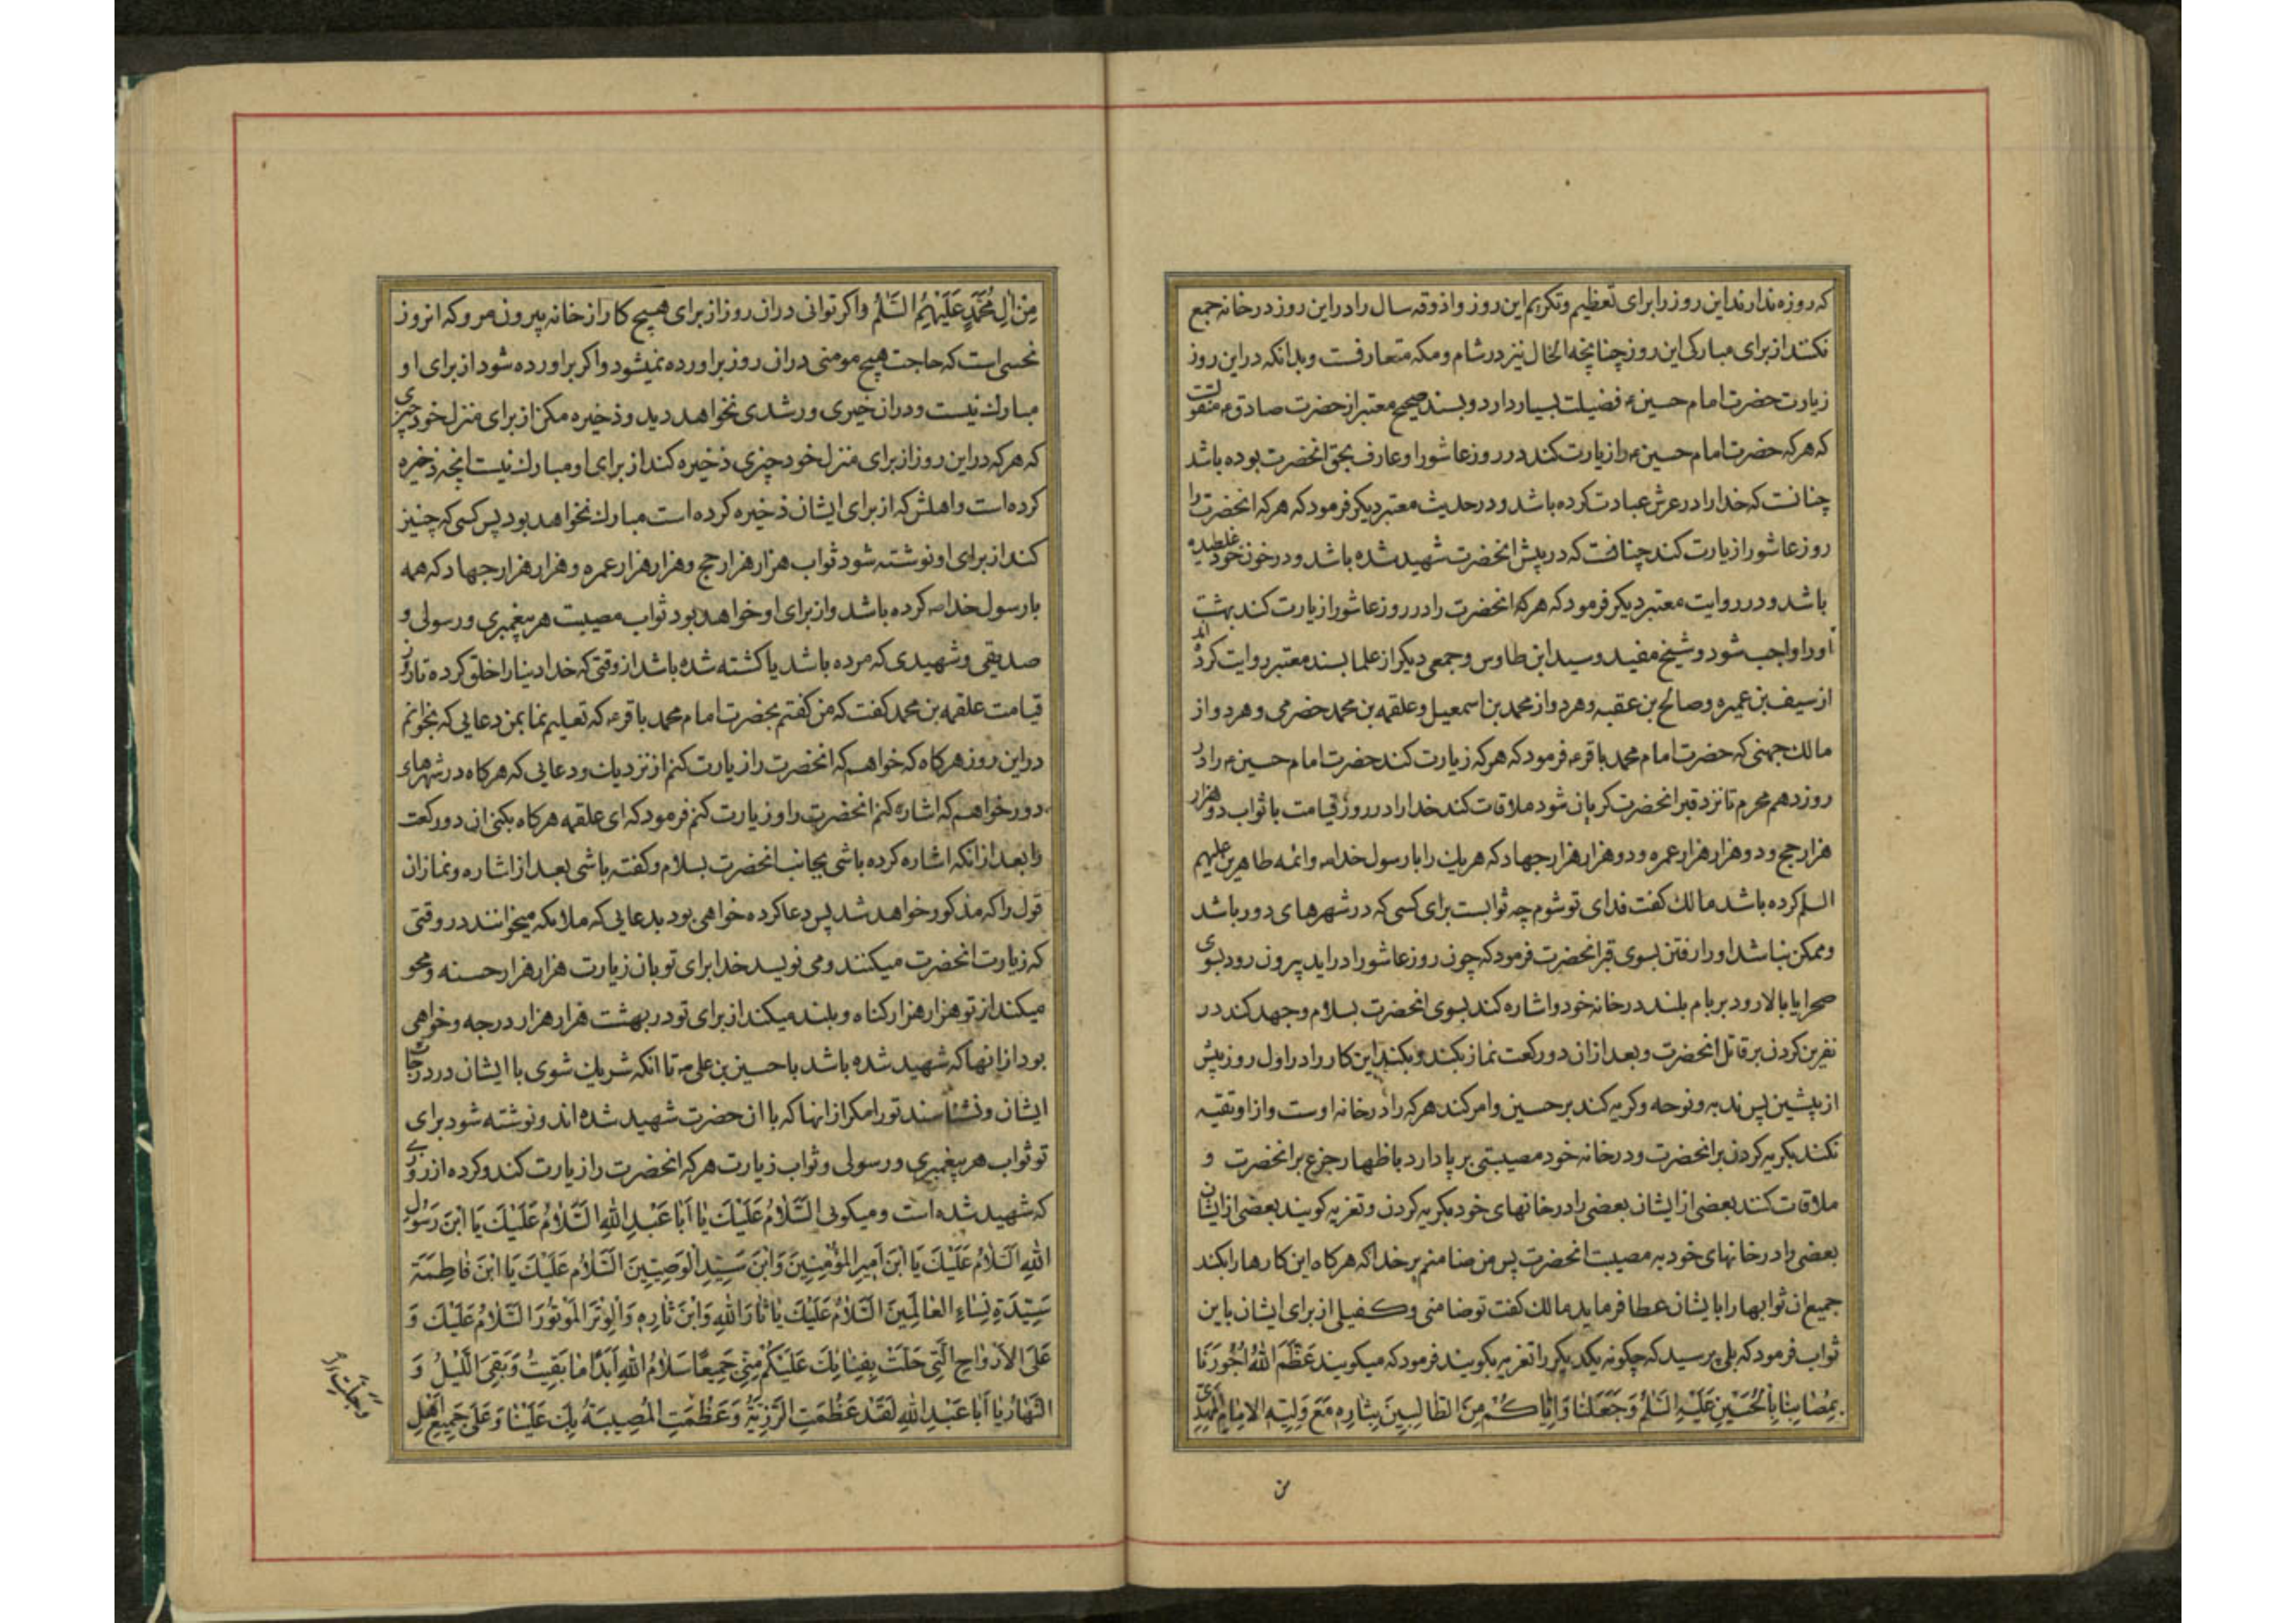 که روزه ندارند این روز را برای تعظیم و تکریم این روز و اذوقه سال را در این روز در خانه جمع
نکنند از برای مبارکی این روز چنانچه الحال نیز در شام و مکه متعارفست و بدانکه در این روز
زیارت حضرت امام حسین ع فضیلت بسیار دارد و بسند صحیح معتبر از حضرت صادق ع منقولست
که هر که حضرت امام حسین ع را زیارت کند در روز عاشورا و عارف بحق انحضرت بوده باشد
چنانست که خدا را در عرش عبادت کرده باشد و در حدیث معتبر دیکر فرمود که هر که انحضرت را
روز عاشورا زیارت کند چنانست که در پیش انحضرت شهید شده باشد و در خون خود غلطیده
باشد و در روایت معتبر دیکر فرمود که هر که انحضرت را در روز عاشورا زیارت کند بهشت
او را واجب شود و شیخ مفید و سید ابن طاوس و جمعی دیکر از علما بسند معتبر روایت کرده اند
از سیف بن عمیره و صالح بن عقبه و هر دو از محمد بن اسمعیل و علقمه بن محمد حضرمی و هر دو از
مالک جهنی که حضرت امام محمد باقر ع فرمود که هر که زیارت کند حضرت امام حسین ع را در
روز دهم محرم تا نزد قبر انحضرت کریان شود ملاقات کند خدا را در روز قیامت با ثواب دو هزار
هزار حج و دو هزار هزار عمره و دو هزار هزار جهاد که هر یک را با رسول خدا ص و ائمه طاهرین علیهم
السلم کرده باشد مالک کفت فدای تو شوم چه ثوابست برای کسی که در شهرهای دور باشد
و ممکن نباشد او را رفتن بسوی قبر انحضرت فرمود که چون روز عاشورا در اید بیرون رود بسوی
صحرا یا بالا رود بر بام بلند در خانه خود و اشاره کند بسوی انحضرت بسلام و جهد کند در
نفرین کردن بر قاتل انحضرت و بعد از ان دو رکعت نماز بکند و بکند این کار را در اول روز پیش
از پیشین پس ندبه و نوحه و کریه کند بر حسین و امر کند هر که را در خانه اوست و از او تقیه
نکند بکریه کردن بر انحضرت و در خانه خود مصیبتی بر پا دارد باظهار جزع بر انحضرت و
ملاقات کنند بعضی از ایشان بعضی را در خانهای خود بکریه کردن و تعزیه کویند بعضی از ایشان
بعضی را در خانهای خود به مصیبت انحضرت پس من ضامنم بر خدا که هر کاه این کارها را بکند
جمیع ان ثوابها را بایشان عطا فرماید مالک کفت تو ضامنی و کفیلی از برای ایشان باین
ثواب فرمود که بلی پرسید که چکونه یکدیکر را تعزیه بکویند فرمود که میکویند عَظَّمَ اللهُ اُجُورَنَا
بِمُصَابِنَا بِالْحُسَیْنِ عَلَیْهِ السَّلمُ وَجَعَلَنَا وَاِیَّاکُمْ مِنَ الطَّالِبِینَ بِثَارِهِ مَعَ وَلِیِّهِ الاِمَامِ الْمَهْدِیِّ
من
مِنْ الِ مُحَمَّدٍ عَلَیْهِمُ السَّلمُ و اکر توانی در ان روز از برای هیچ کار از خانه بیرون مرو که انروز
نحسی است که حاجت هیچ مومنی در ان روز براورده نمیشود و اکر براورده شود از برای او
مبارک نیست و در ان خیری و رشدی نخواهد دید و ذخیره مکن از برای منزل خود چیزی
که هر که در این روز از برای منزل خود چیزی ذخیره کند از برای او مبارک نیست انچه ذخیره
کرده است و اهلش که از برای ایشان ذخیره کرده است مبارک نخواهد بود پس کسی که چنین
کند از برای او نوشته شود ثواب هزار هزار حج و هزار هزار عمره و هزار هزار جهاد که همه
با رسول خدا ص کرده باشد و از برای او خواهد بود ثواب مصیبت هر پیغمبری و رسولی و
صدیقی و شهیدی که مرده باشد یا کشته شده باشد از وقتی که خدا دنیا را خلق کرده تا روز
قیامت علقمه بن محمد کفت که من کفتم بحضرت امام محمد باقر ع که تعلیم نما بمن دعایی که بخوانم
در این روز هر کاه که خواهم که انحضرت را زیارت کنم از نزدیک و دعایی که هر کاه در شهرهای
دور خواهم که اشاره کنم انحضرت را و زیارت کنم فرمود که ای علقمه هر کاه بکنی ان دو رکعت
را بعد از انکه اشاره کرده باشی بجانب انحضرت بسلام و کفته باشی بعد از اشاره و نماز ان
قول را که مذکور خواهد شد پس دعا کرده خواهی بود بدعایی که ملایکه میخوانند در وقتی
که زیارت انحضرت میکنند و می نویسد خدا برای تو بان زیارت هزار هزار حسنه و محو
میکند از تو هزار هزار کناه و بلند میکند از برای تو در بهشت هزار هزار درجه و خواهی
بود از انها که شهید شده باشد با حسین بن علی ع تا انکه شریک شوی با ایشان در درجات
ایشان و نشناسند تو را مکر از انها که با ان حضرت شهید شده اند و نوشته شود برای
تو ثواب هر پیغمبری و رسولی و ثواب زیارت هر که انحضرت را زیارت کند و کرده از روزی
که شهید شده است و میکوئی السَّلامُ عَلَیْکَ یَا اَبَا عَبْدِ اللهِ السَّلامُ عَلَیْکَ یَا ابْنَ رَسُولِ
اللهِ السَّلامُ عَلَیْکَ یَا ابْنَ اَمِیرِ الْمُؤْمِنِینَ وَابْنَ سَیِّدِ الْوَصِیِّینَ السَّلامُ عَلَیْکَ یَا ابْنَ فَاطِمَةَ
سَیِّدَةِ نِسَاءِ الْعَالَمِینَ السَّلامُ عَلَیْکَ یَا ثَارَ اللهِ وَابْنَ ثَارِهِ وَالْوِتْرَ الْمَوْتُورَ السَّلامُ عَلَیْکَ وَ
عَلَی الاَرْوَاحِ الَّتِی حَلَّتْ بِفِنَائِکَ عَلَیْکُمْ مِنِّی جَمِیعًا سَلامُ اللهِ اَبَدًا مَا بَقِیتُ وَبَقِیَ اللَّیْلُ وَ
النَّهَارُ یَا اَبَا عَبْدِ اللهِ لَقَدْ عَظُمَتِ الرَّزِیَّةُ وَعَظُمَتِ الْمُصِیبَةُ بِکَ عَلَیْنَا وَعَلَی جَمِیعِ اَهْلِ